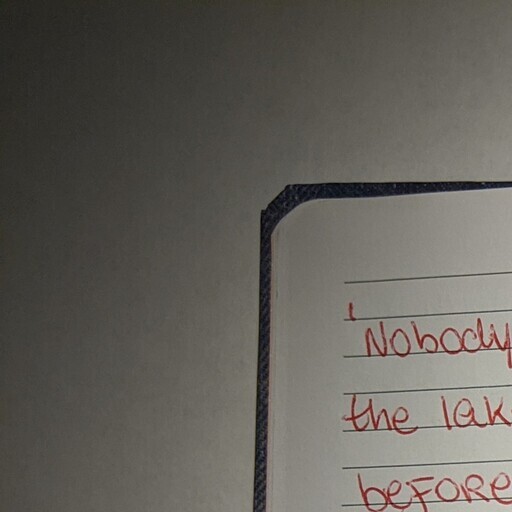 Nobody
the lak
before